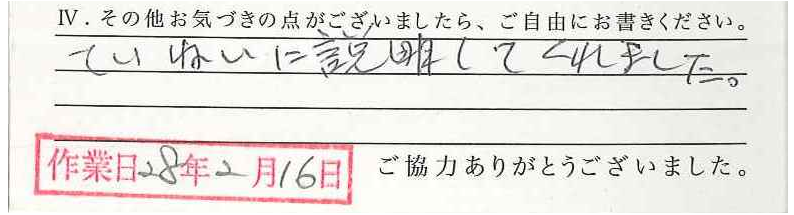 Ⅳ．その他お気づきの点がございましたら、ご自由にお書きください。
ていねいに説明してくれました。
作業日28年2月16日
ご協力ありがとうございました。